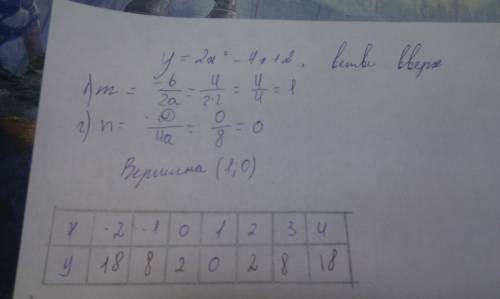 y = 2x² - 4x + 2, ветви вверх
1) m = -b/2a = 4/2·2 = 4/4 = 1
2) n = -D/4a = 0/8 = 0
Вершина (1,0)
x -2 -1 0 1 2 3 4
y 18 8 2 0 2 8 18